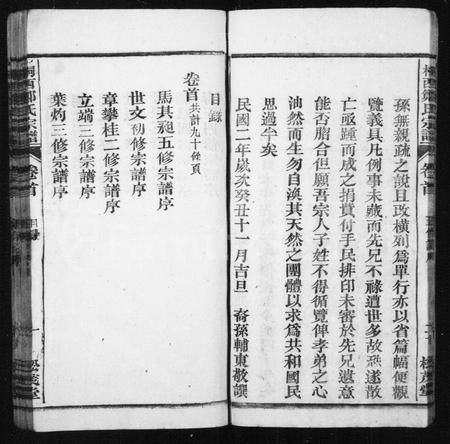 孫無親疏之說且改橫列爲單行亦以省篇幅便觀
覽義具凡例事未蕆而先兄不祿遭世多故恐遂散
亡亟踵而成之捐貲付手民排印未審於先兄遺意
能否脗合但願吾宗人子姓不得循覽俾孝弟之心
油然而生勿自渙其天然之團體以求爲共和國民
思過半矣
民國二年歲次癸丑十一月吉旦 裔孫輔東敬譔
目錄
卷首共計九十餘頁
馬其昶五修宗譜序
世文初修宗譜序
章攀桂二修宗譜序
立端三修宗譜序
葉灼三修宗譜序
桐西鄭氏宗譜 卷首 目錄 一